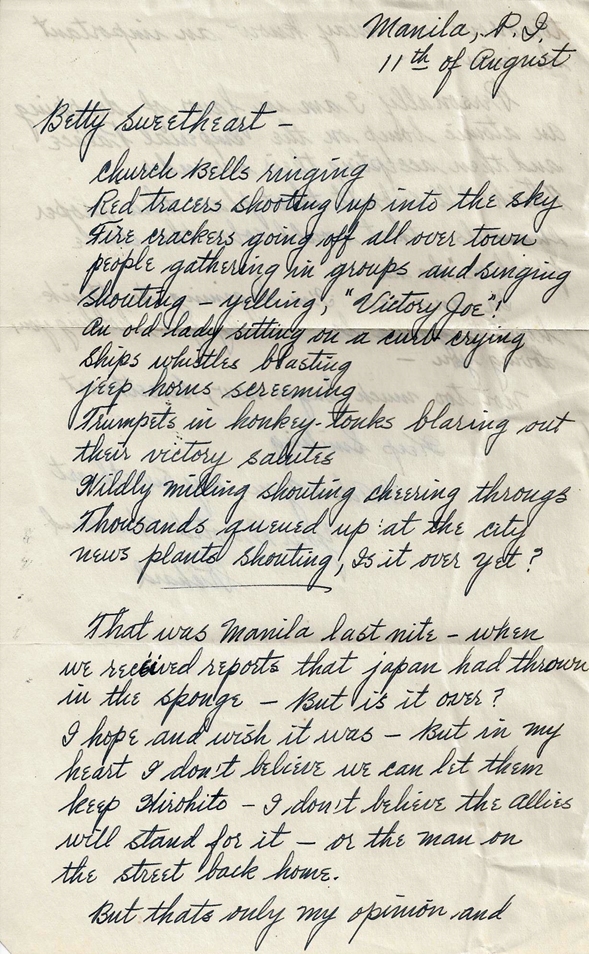 Manila, P.I.
11th of August
Betty Sweetheart -
Church Bells ringing
Red tracers shooting up into the sky
Fire crackers going off all over town
people gathering in groups and singing
shouting - yelling, "Victory Joe"!
An old lady sitting on a curb crying
Ships whistles blasting
jeep horns screeming
Trumpets in honkey-tonks blaring out
their victory salutes
Wildly milling shouting cheering throngs
Thousands queued up at the city
news plants shouting, Is it over yet?
That was Manila last nite - when
we received reports that japan had thrown
in the sponge - But is it over?
I hope and wish it was - But in my
heart I don't believe we can let them
keep Hirohito - I don't believe the Allies
will stand for it - or the man on
the street back home.
But thats only my opinion and